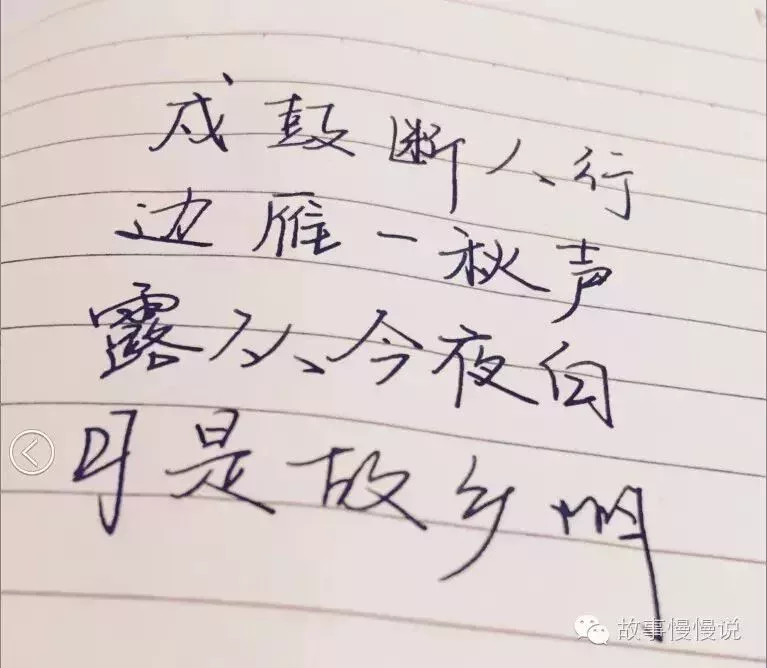 戍鼓断人行
边雁一秋声
露从今夜白
月是故乡明
故事慢慢说